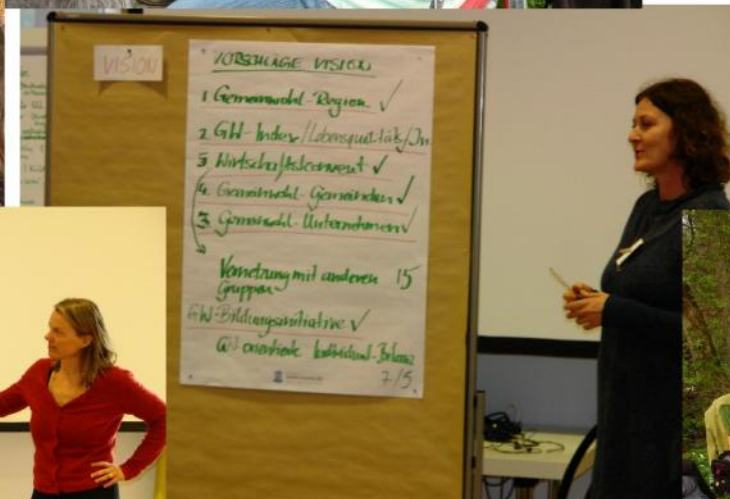 VISION
VORSCHLÄGE VISION
1 Gemeinwohl-Region ✓
2. GW-Index/Lebensqualität/In.
5 Wirtschaftskonvent ✓
4. Gemeinwohl-Gemeinden ✓
3. Gemeinwohl-Unternehmen ✓
Vernetzung mit anderen 15
Gruppen
GW-Bildungsinitiative ✓
GW-orientierte Individual-Bilanz
7/5